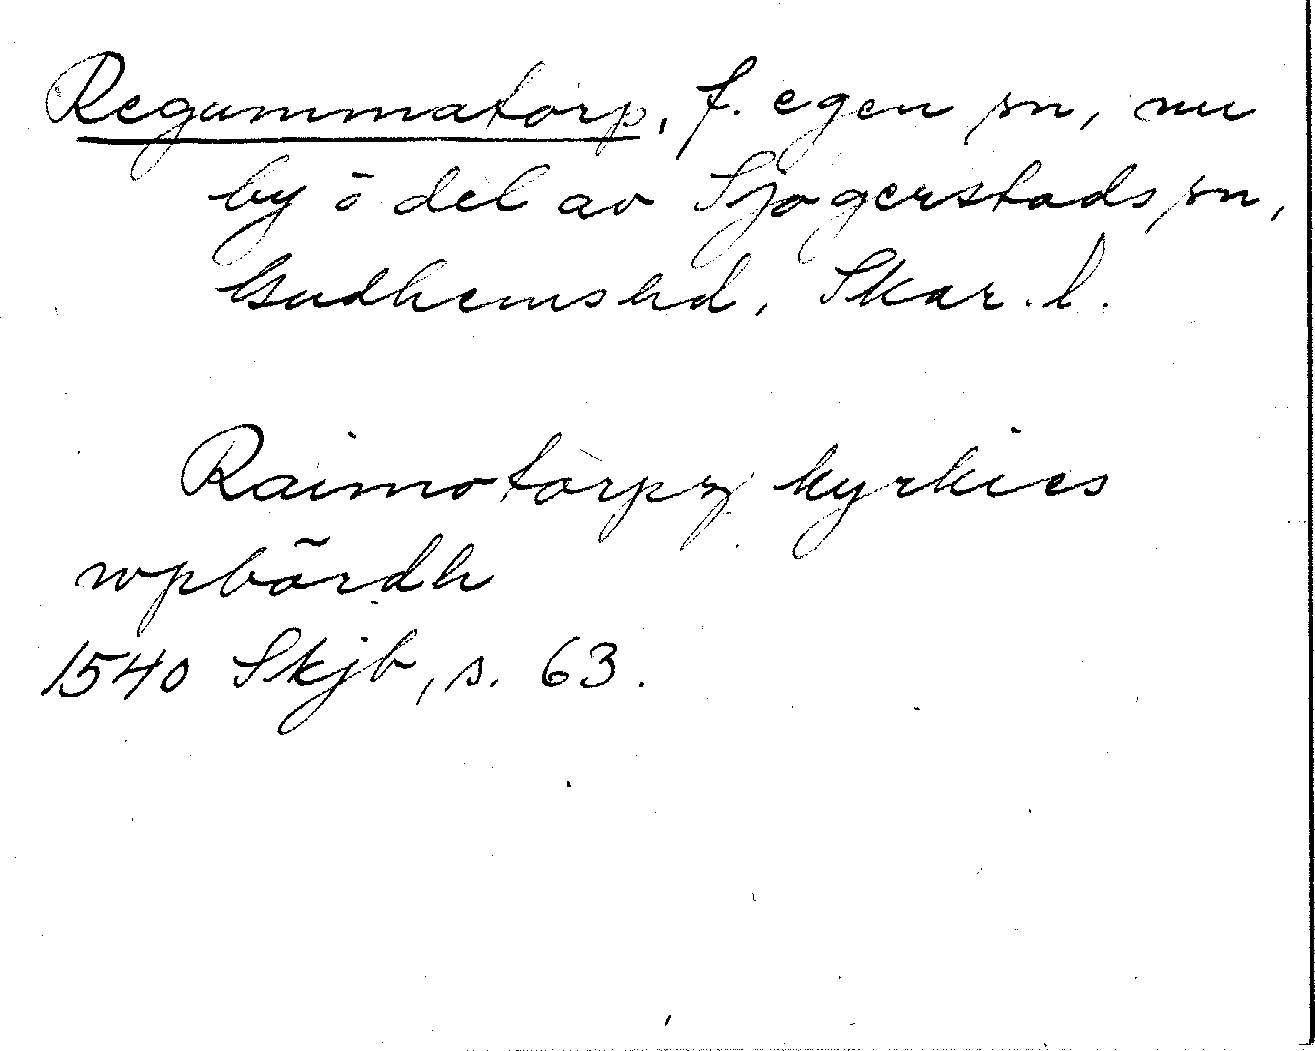 Regummatorp, f. egen sn, nu
by i ö del av Sjogerstads sn,
Gudhems hd, Skar. l.
Raimotorpz kyrkies
wpbördh
1540 Skjb, s. 63.